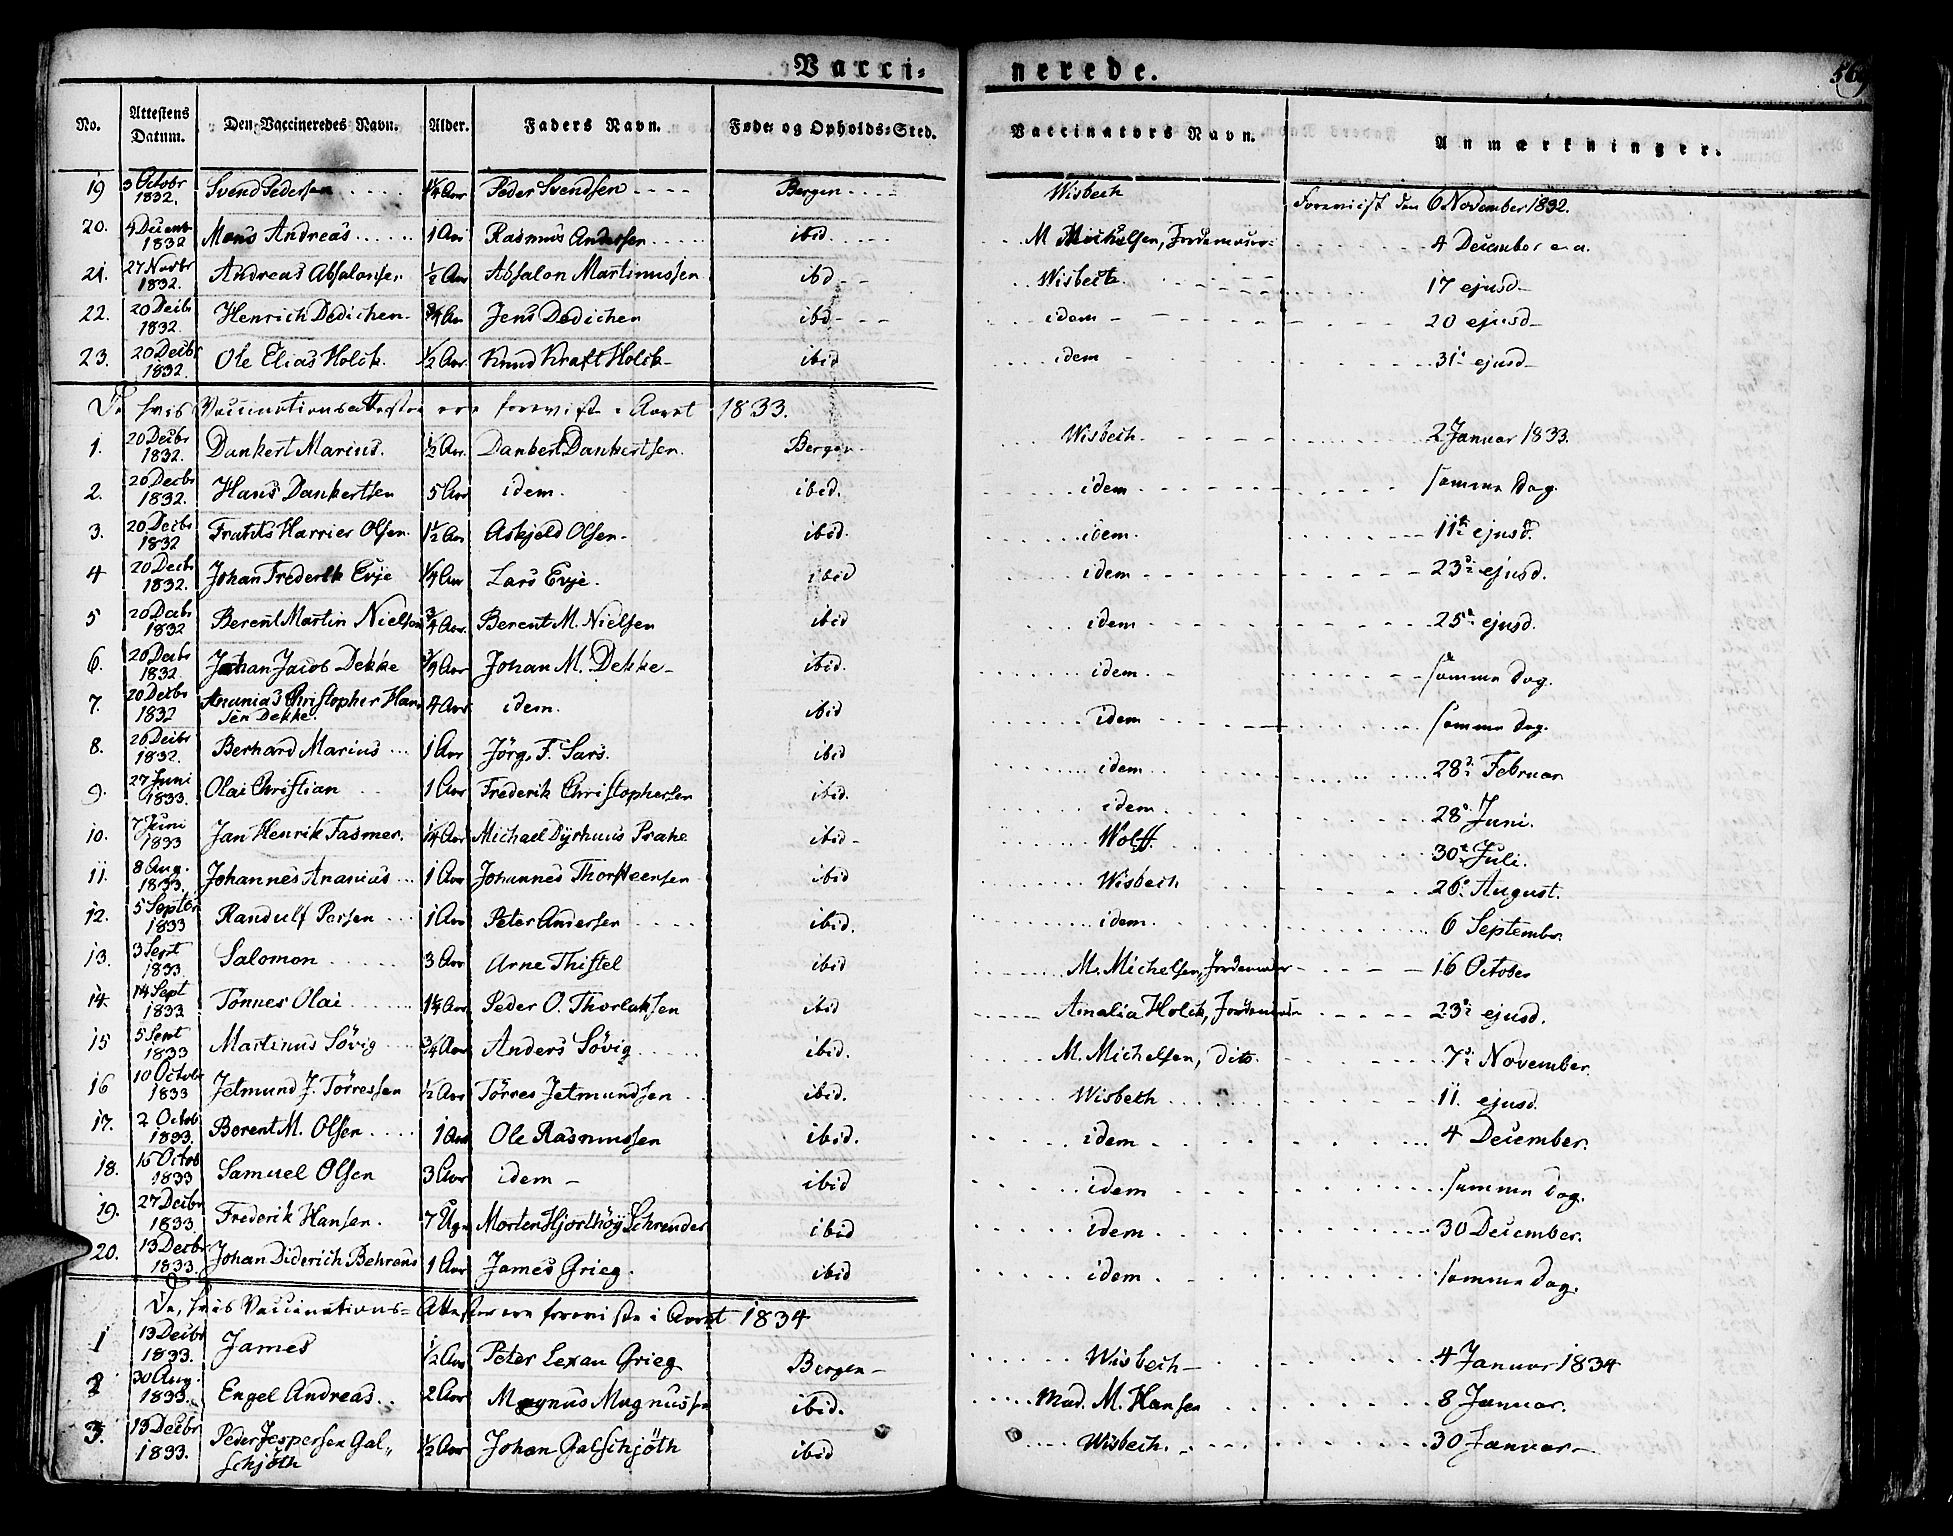 Vacci- nerede. 569
No. | Attestens Datum. | Den Vaccineredes Navn. | Alder. | Faders Navn. | Føde- og Opholds-Sted. | Vaccinators Navn. | Anmærkninger.
19 | 3 Octobr 1832. | Svend Pedersen | 1/4 Aar | Peder Svendsen | Bergen | Wisbech | Foreviist den 6 November 1832.
20. | 4 Decemb 1832 | Mons Andreas | 1 Aar | Rasmus Andersen | ibid. | M Michelsen, Jordemoder | 4 December e. a.
21. | 27 Novbr 1832. | Andreas Absalonsen | 1/2 Aar | Absalon Martinussen | ibd | Wisbech | 17 ejusd
22. | 20 Decbr 1832. | Henrich Dedichen | 3/4 Aar | Jens Dedichen | ibd | idem | 20 ejusd
23. | 20 Decbr 1832. | Ole Elias Holck | 1/2 Aar | Knud Kraft Holck | ibid | idem | 31 ejusd
De, hvis Vaccinationsattester ere foreviste i Aaret 1833.
1. | 20 Decbr 1832. | Dankert Marius. | 1/2 Aar | Dankert Dankertsen. | Bergen | Wisbech | 2 Januar 1833.
2. | 20 Decbr 1832. | Hans Dankertsen | 5 Aar | idem. | ibid. | idem | samme Dag.
3. | 20 Decbr 1832 | Frants Harries Olsen | 1 1/2 Aar | Askjeld Olsen | ibid. | idem. | 11 ejusd.
4 | 20 Decb 1832. | Johan Frederik Evje | 1/4 Aar | Lars Evje. | ibid | idem | 23 ejusd.
5 | 20 Decbr 1832 | Berent Martin Nielsen | 3/4 Aar | Berent M. Nielsen | ibid | idem | 25 ejusd.
6. | 20 Decbr 1832. | Johan Jacob Dekke | 3/4 Aar | Johan M. Dekke | ibid. | idem | samme Dag.
7. | 20 Decbr 1832 | Ananias Christopher Hansen Dekke. | 4 Aar | idem. | ibid | idem | samme Dag.
8. | 20 Decbr 1832. | Berhard Marius | 1 Aar | Jørg. F. Sars. | ibid | idem | 28 Februar
9. | 27 Juni 1833. | Olai Christian | 1 Aar | Frederik Christophersen | ibid. | idem | 28 Juni.
10. | 7 Juni 1833 | Jan Henrik Fasmer. | 1/4 Aar | Michael Dyrhuus Prahe | ibid | Wolff. | 30 Juli.
11. | 8 Aug. 1833. | Johannes Ananias | 1 Aar | Johannes Thorsteensen | ibid | Wisbech | 26 August.
12. | 5 Septbr 1833 | Randulf Persen | 1 Aar | Peter Andersen | ibid. | idem | 6 September.
13. | 3 Sept 1833. | Salomon | 3 Aar | Arne Thistel | ibid | M. Michelsen, Jordemoder | 16 October
14. | 14 Sept 1833 | Tønnes Olai | 1/4 Aar | Peder O. Thorlaksen | ibid | Amalia Holck, Jordemoder | 23 ejusd.
15 | 5 Sept 1833 | Martinus Søvig | 3/4 Aar | Anders Søvig | ibid. | M. Michelsen, dito. | 7 November.
16 | 10 Octobr 1833 | Jetmund J. Tørressen | 1/2 Aar | Tørres Jetmundsen | ibid. | Wisbech | 11. ejusd.
17. | 2 Octob 1833. | Berent M. Olsen | 1 Aar | Ole Rasmussen | ibid. | idem | 4 December.
18. | 16 Octob 1833 | Samuel Olsen | 3 Aar | idem | ibid | idem | samme Dag.
19. | 27 Decbr 1833. | Frederik Hansen. | 7 Ugr | Morten Hjorthøy Schreuder | ibid | idem | 30 December.
20. | 13 Decbr 1833. | Johan Diderich Behrens | 1 Aar | James Grieg. | ibid | idem | samme Dag.
De, hvis Vaccinations-Attester ere foreviste i Aaret 1834
1 | 13 Decbr 1833. | James | 1/2 Aar | Peter Lexau Grieg | Bergen | Wisbech | 4 Januar 1834
2 | 30 Aug. 1833. | Engel Andreas | 2 Aar | Magnus Magnussen | ibid. | Mad. M. Hansen | 8 Januar.
3. | 13 Decbr 1833. | Peder Jespersen Galschjøth | 1/2 Aar | Johan Galschjøth | ibid | Wisbech. | 30 Januar